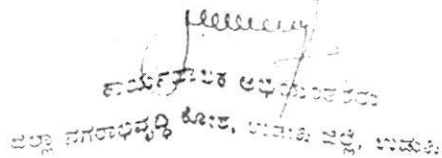 ಕಾರ್ಯಪಾಲಕ ಅಭಿಯಂತರರು
ಜಿಲ್ಲಾ ನಗರಾಭಿವೃದ್ಧಿ ಕೋಶ, ಉಡುಪಿ ಜಿಲ್ಲೆ, ಉಡುಪಿ